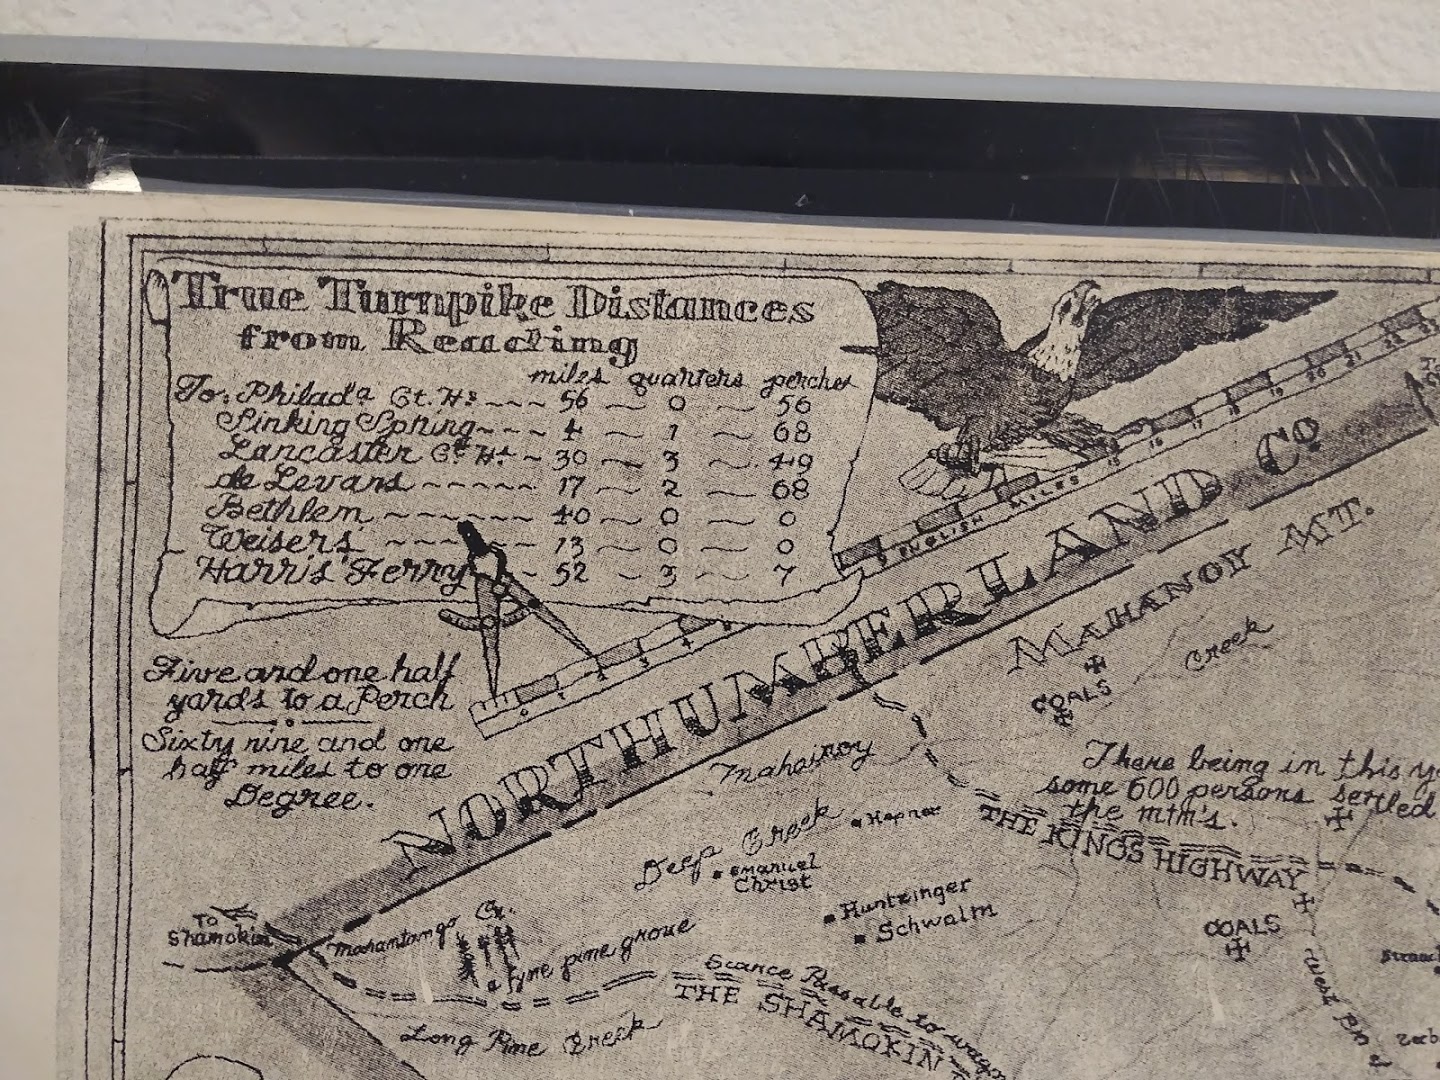 True Turnpike Distances
from Reading
miles quarters perches
To: Philada Ct. Hs ~~~ 56 ~ 0 ~ 56
Sinking Spring ~~~ 4 ~ 1 ~ 68
Lancaster Ct. Hs ~ 30 ~ 3 ~ 49
de Levans ~~~~~ 17 ~ 2 ~ 68
Bethlem ~~~~~~~ 40 ~ 0 ~ 0
Weisers ~~~~ 13 ~ 0 ~ 0
Harris' Ferry ~ 52 ~ 3 ~ 7
Five and one half
yards to a Perch
Sixty nine and one
half miles to one
Degree.
ENGLISH MILES
NORTHUMBERLAND Co
MAHANOY MT.
Creek
COALS
Mahainoy
There being in this
some 600 persons settled
the mtm's.
THE KINGS HIGHWAY
Deep Creek
Hepner
Emanuel
Christ
Huntzinger
Schwalm
COALS
TO
Shamokin
Mahantango Cr.
fyne pine grove
Scarce Passable to
THE SHAMOKIN
Long Pine Creek
West